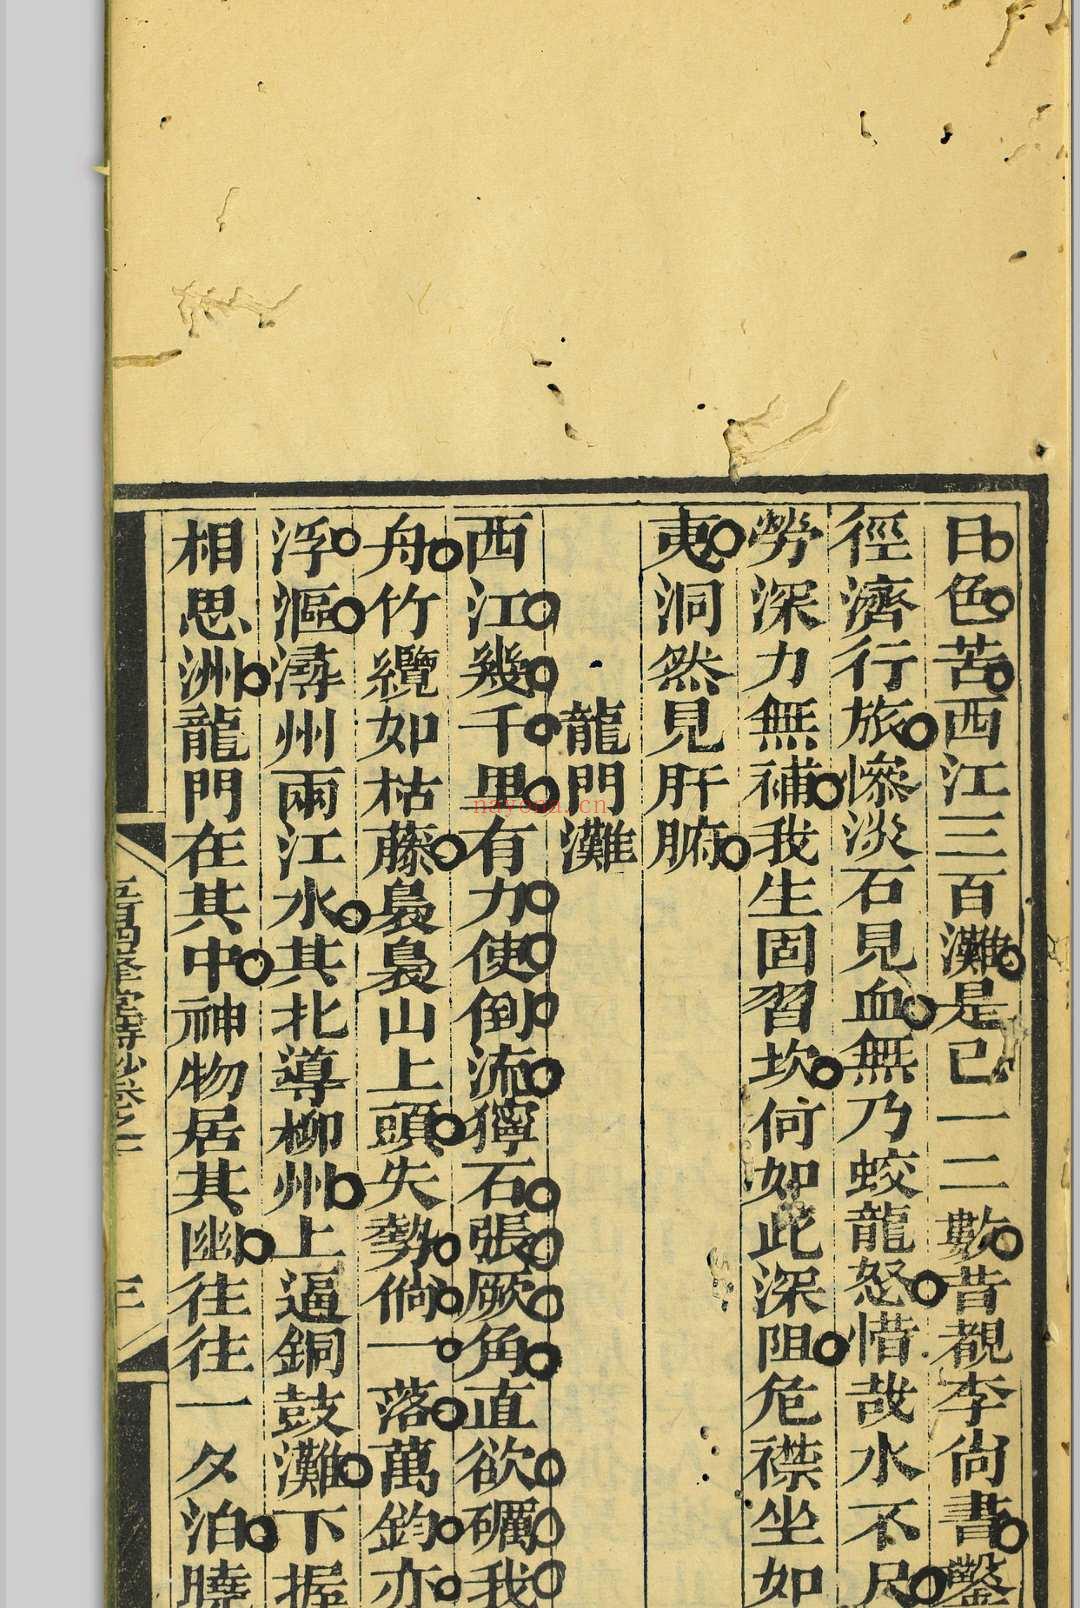 日色苦西江三百灘是已一二數昔覩李尚書鑿
徑濟行旅慘淡石見血無乃蛟龍怒惜哉水不尺
勞深力無補我生固習坎何如此深阻危襟坐如
夷洞然見肝腑
龍門灘
西江幾千里有力使倒流獰石張厥角直欲礪我
舟竹纜如枯藤裊裊山上頭失勢倘一落萬鈞亦
浮漚潯州兩江水其北導柳州上逼銅鼓灘下握
相思洲龍門在其中神物居其幽往往一夕泊曉
堂詩鈔卷之一
三
nayona.cn